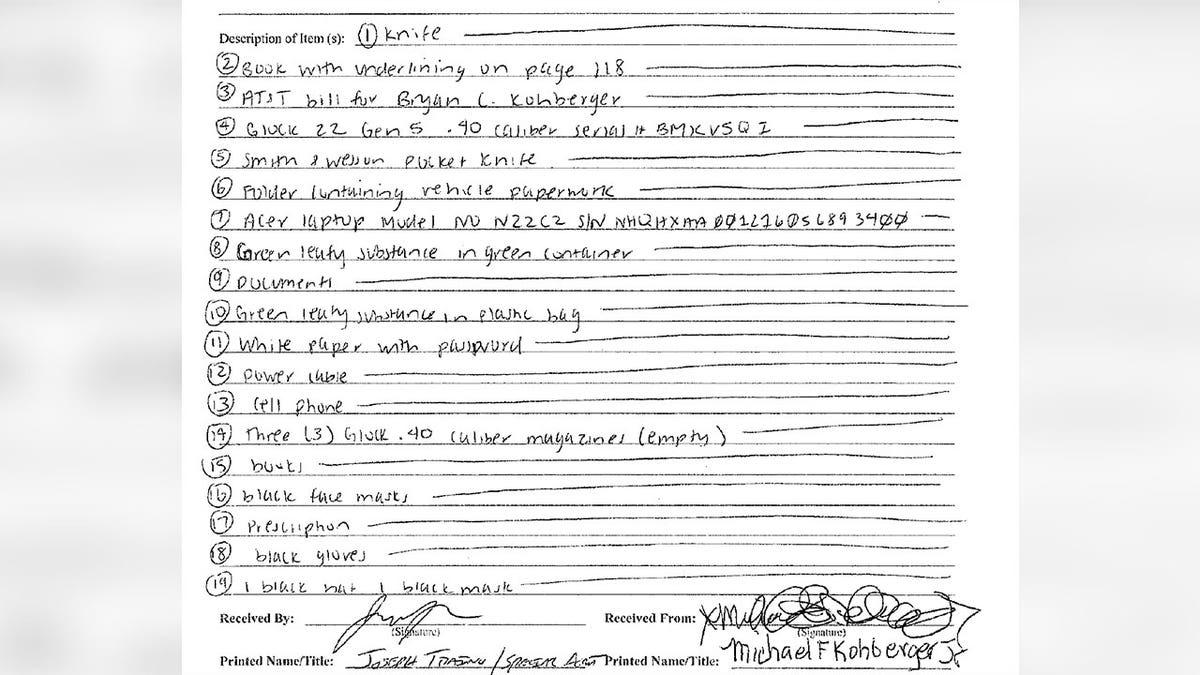 Description of Item (s): ① Knife
② Book with underlining on page 118
③ AT&T bill for Bryan C. Kohberger
④ Glock 22 Gen 5 .40 caliber serial #
⑤ Smith & Wesson pocket knife
⑥ Folder containing vehicle paperwork
⑦ Acer laptop Model No N22C2 S/N
⑧ Green leafy substance in green container
⑨ Documents
⑩ Green leafy substance in plastic bag
⑪ White paper with password
⑫ power cable
⑬ cell phone
⑭ Three (3) Glock .40 caliber magazines (empty)
⑮ books
⑯ black face masks
⑰ Prescription
⑱ black gloves
⑲ 1 black hat 1 black mask
Received By: Received From: X
(Signature) (Signature)
Printed Name/Title: Joseph / Special Agent Printed Name/Title: Michael F Kohberger Jr